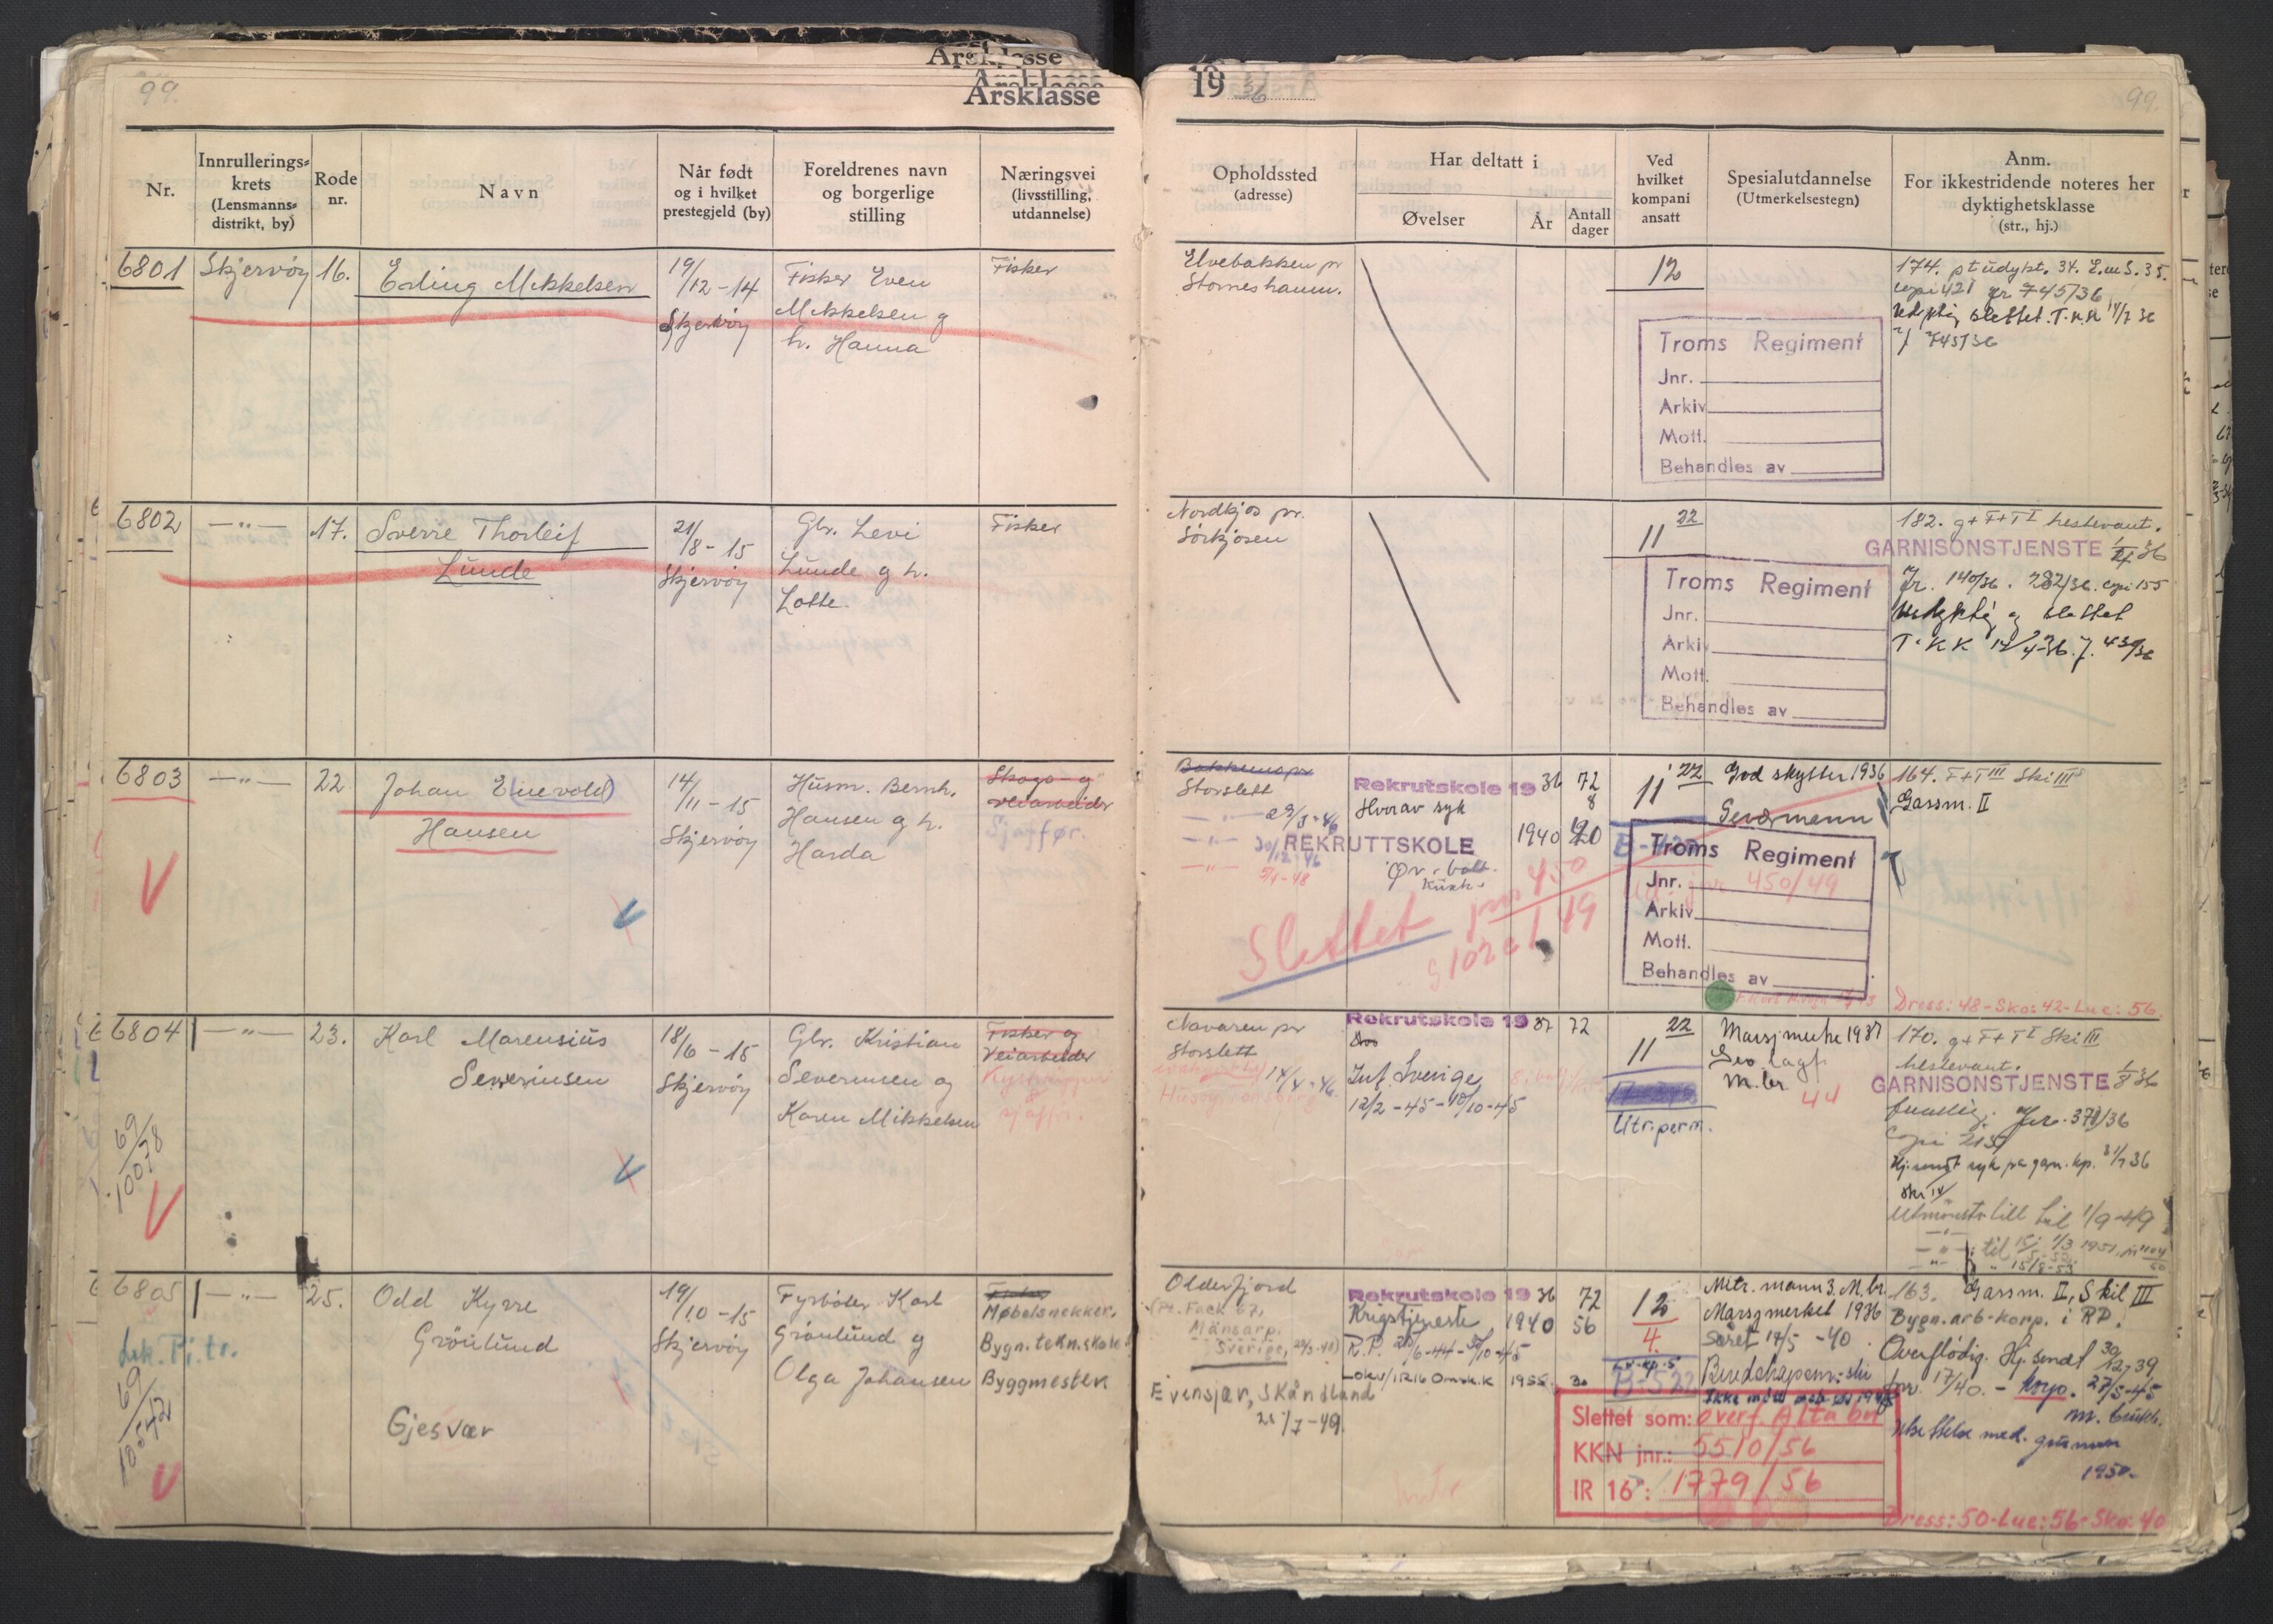 99.
Årsklasse
Nr.
Innrullerings=
krets
(Lensmanns=
distrikt, by)
Rode
nr.
Navn
Når født
og i hvilket
prestegjeld (by)
Foreldrenes navn
og borgerlige
stilling
Næringsvei
(livsstilling,
utdannelse)
6801
Skjervöy
16.
Erling Mikkelsen
19/12-14
Skjervöy
Fisker Even
Mikkelsen og
h. Hanna
Fisker
6802
—"—
17.
Sverre Thorleif
Lunde
21/8-15
Skjervöy
Gbr. Levi
Lunde og h.
Lotte.
Fisker
6803
—"—
22
Johan E(nevold)
Hansen
14/11-15
Skjervöy
Husm. Bernh.
Hansen og h.
Harda
Skogs- og
veiarbeider
Sjåffør.
6804
—"—
23.
Karl Marensius
Severinsen
18/6-15
Skjervöy
Gbr. Kristian
Severinsen og
Karen Mikkelsen
Fisker og
Veiarbeider
sjåffr.
69/10078
6805
—"—
25.
Odd Kyrre
Grönlund
Gjesvær
19/10-15
Skjervöy
Fyrböter Karl
Grönlund og
Olga Johansen
Fisker
Møbelsnekker.
Bygn.tekn.skole
Byggmester
69/10542
19 36
99.
Opholdssted
(adresse)
Har deltatt i
Øvelser
År
Antall
dager
Ved
hvilket
kompani
ansatt
Spesialutdannelse
(Utmerkelsestegn)
Anm.
For ikkestridende noteres her
dyktighetsklasse
(str., hj.)
Elvebakken pr
Storneshamn.
12
Troms Regiment
Jnr.
Arkiv
Mott.
Behandles av
174. pt udykt. 34. E.m.S. 35.
copi 421 jr 745/36
Udyktig slettet. T.K.K 11/7 36
j 745/36
Nordkjos pr.
Sörkjosen
11 22
Troms Regiment
Jnr.
Arkiv
Mott.
Behandles av
182. g+F+T I hestevant.
GARNISONSTJENSTE
Jr. 140/36. 282/36. copi 155
Udyktig og slettet
T.K.K 14/4-36. j. 430/36
Bakkemo pr
Storslett
—"— 29/3-46
—"— 30/12-46
—"— 5/1-48
Rekrutskole 19 36 72
Hvorav syk 8
REKRUTTSKOLE 1940
Øv. bat.
Kusk.
Slettet jnr 450
/49
11 22
God skytter 1936
Geværmann
Troms Regiment
Jnr. 450/49
Arkiv
Mott.
Behandles av
164. F+T III Ski III
Gassm. II
Dress: 48-Sko: 42-Lue: 56.
Navaren pr
Storslett
14/4-46
Rekrutskole 19 37 72
Inf. Sverige
12/2-45-10/10-45
11 22
Utr.perm.
Marsjmerke 1937
M.br.
44
170. g+F+T I Ski III
hestevant.
GARNISONSTJENSTE 1/8 36
Jnr. 371/36
Hj.sendt syk på garn.kp. 31/7 36
1/9-49
Olderfjord
(Pt. Fack 67,
Månsarp.
Sverige,
Evensjær, Skånland
25/7-49.
Rekrutskole 19 36 72
Krigstjeneste 1940 56
R.P. 20/6-44-30/10-45
1955.
12
4.
Lv.kp. 5
B-522
Mitr. mann 3. M.br.
Marsjmerket 1936
Såret 17/5-40.
Beredskapsm. ski
Slettet som: overf. Alta bn
KKN jnr.: 5510/56
IR 16 : 1779/56
163. Gassm. II, Skil III
Bygn.arb-korp. i RP.
Overflødig. Hj. sendt 30/12-39
Jnr. 17/40. - korp. 27/5-45
1950.
Dress: 50-Lue: 56-Sko: 40